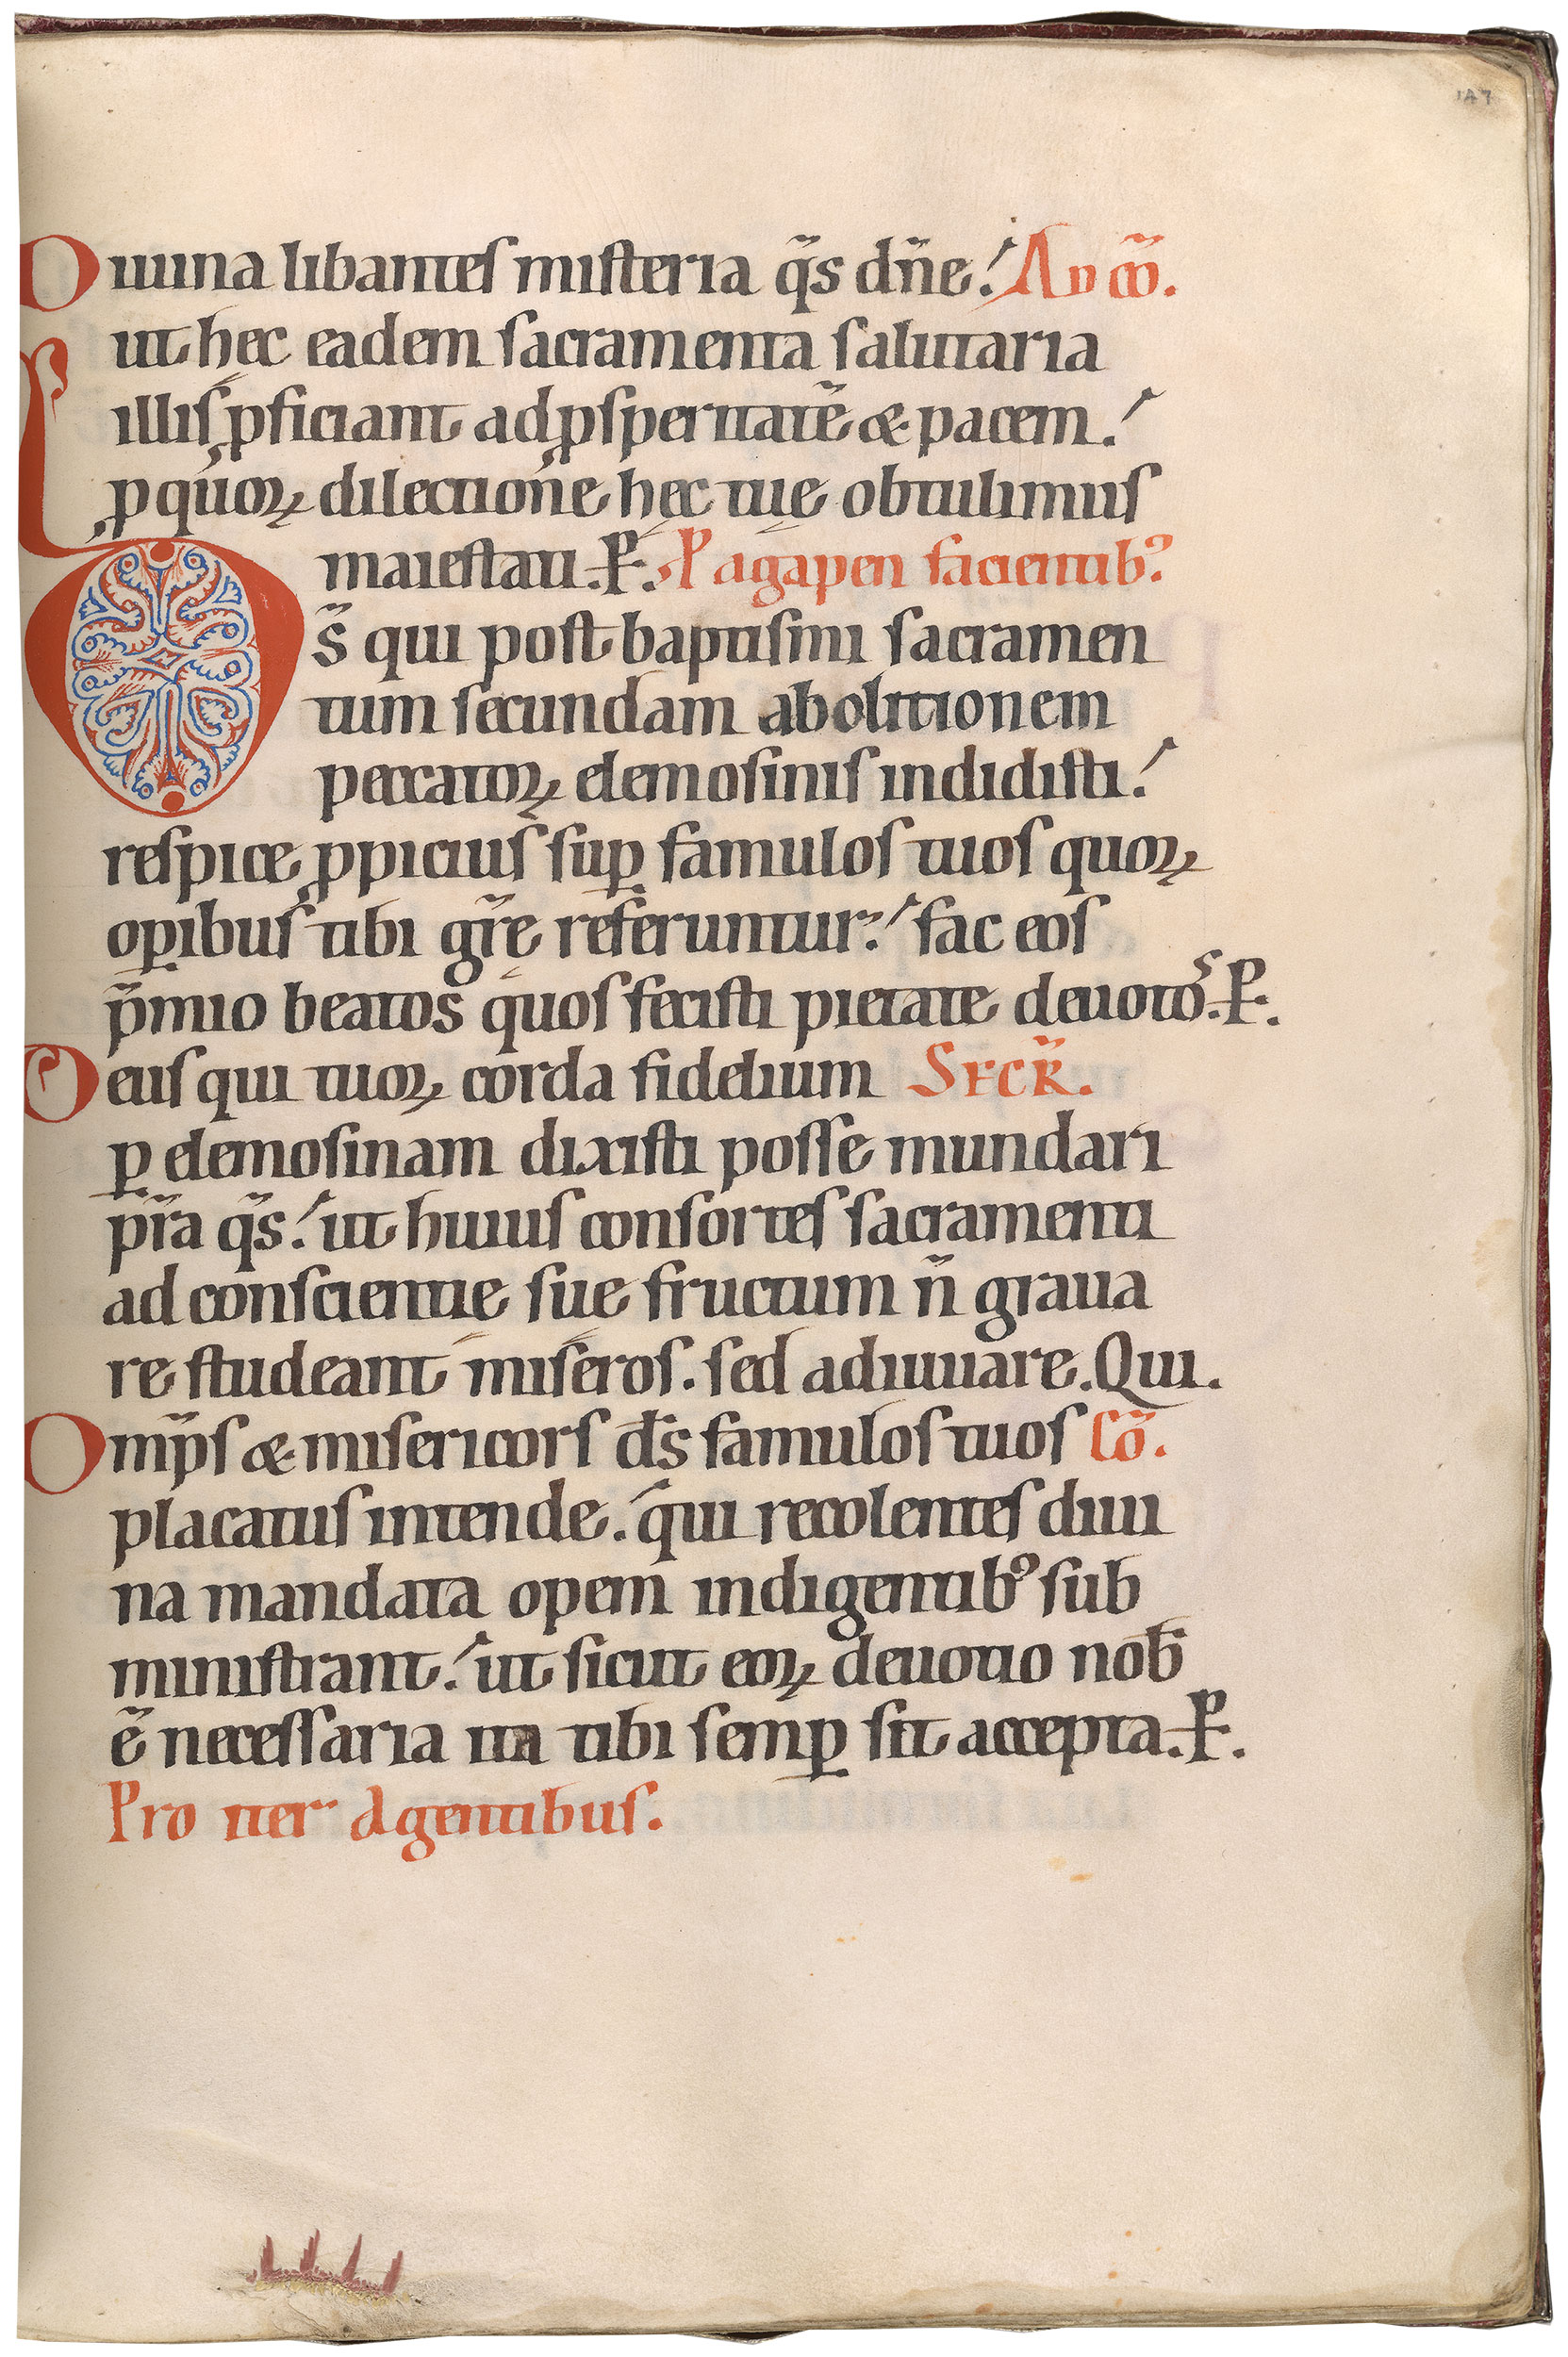 147
Diuina libantes misteria q̃s dñe! Ad cō̃.
ut hęc eadem sacramenta salutaria
illis ꝓficiant ad ꝓsperitatẽ & pacem!
ꝓ quoꝝ dilectione hęc tuę obtulimus
maiestati. P̱. P agapen facientibꝰ.
D s̃ qui post baptismi sacramen
tum secundam abolitionem
peccatoꝝ elemosinis indidisti!
respice ꝓpicius suꝑ famulos tuos quoꝝ
oꝑibus tibi gr̃ę referuntur! fac eos
p̃mio beatos quos fecisti pietate deuotos. P̱.
Deus qui tuoꝝ corda fidelium SECR̃.
ꝑ elemosinam dixisti posse mundari
pr̃a q̃s! ut huius consortes sacramenti
ad conscientię suę fructum ñ graua
re studeant miseros. sed adiuuare. Qui.
Omp̃s & misericors ds̃ famulos tuos Cõ.
placatus intende. qui recolentes diui
na mandata opem indigentibꝰ sub
ministrant! ut sicut eoꝝ deuotio nob̃
ẽ necessaria ita tibi semꝑ sit accepta. P̱.
Pro iter agentibus.